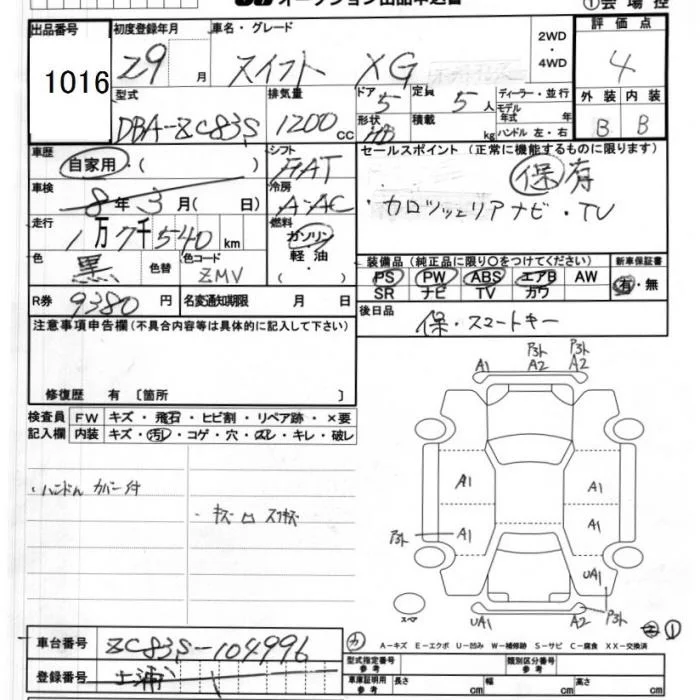 オークション出品申込書 ①会場控
出品番号 初度登録年月 車名・グレード 2WD・4WD 評価点
1016 29 月 スイフト XG 4
型式 排気量 ドア 5 定員 5人 ディーラー・並行 外装 内装
DBA-ZC83S 1200cc 形状 HB 積載 kg モデル年式 年 ハンドル 左・右 B B
車歴 自家用・( ) シフト FAT セールスポイント (正常に機能するものに限ります)
車検 8年3月( 日) 冷房 A・AC 保有
走行 1万7千540km 燃料 ガソリン 軽油 ・( ) ・カロッツェリアナビ・TV
色 黒 色替 色コード ZMV 装備品 (純正品に限り〇をつけてください) 新車保証書
PS PW ABS エアB AW 有・無
SR ナビ TV カワ
R券 9380円 名変通知期限 月 日 後日品 保・スマートキー
注意事項申告欄(不具合内容等は具体的に記入して下さい)
修復歴 有 〔箇所 〕
検査員 FW キズ・飛石・ヒビ割・リペア跡・×要
記入欄 内装 キズ・汚レ・コゲ・穴・スレ・キレ・破レ
A1 P3ト A2 P3ト A2
・ハンドルカバー付
A1 A1
・キズ ロ スリキズ
P3ト A1 A1
UA1
スペア UA1 A2 P3ト
車台番号 ZC83S-104996
A-キズ E-エクボ U-凹み W-補修跡 S-サビ C-腐食 XX-交換済
登録番号 土浦
型式指定番号 参考 類別区分番号 参考
車庫証明用 参考 長さ cm 幅 cm 高さ cm